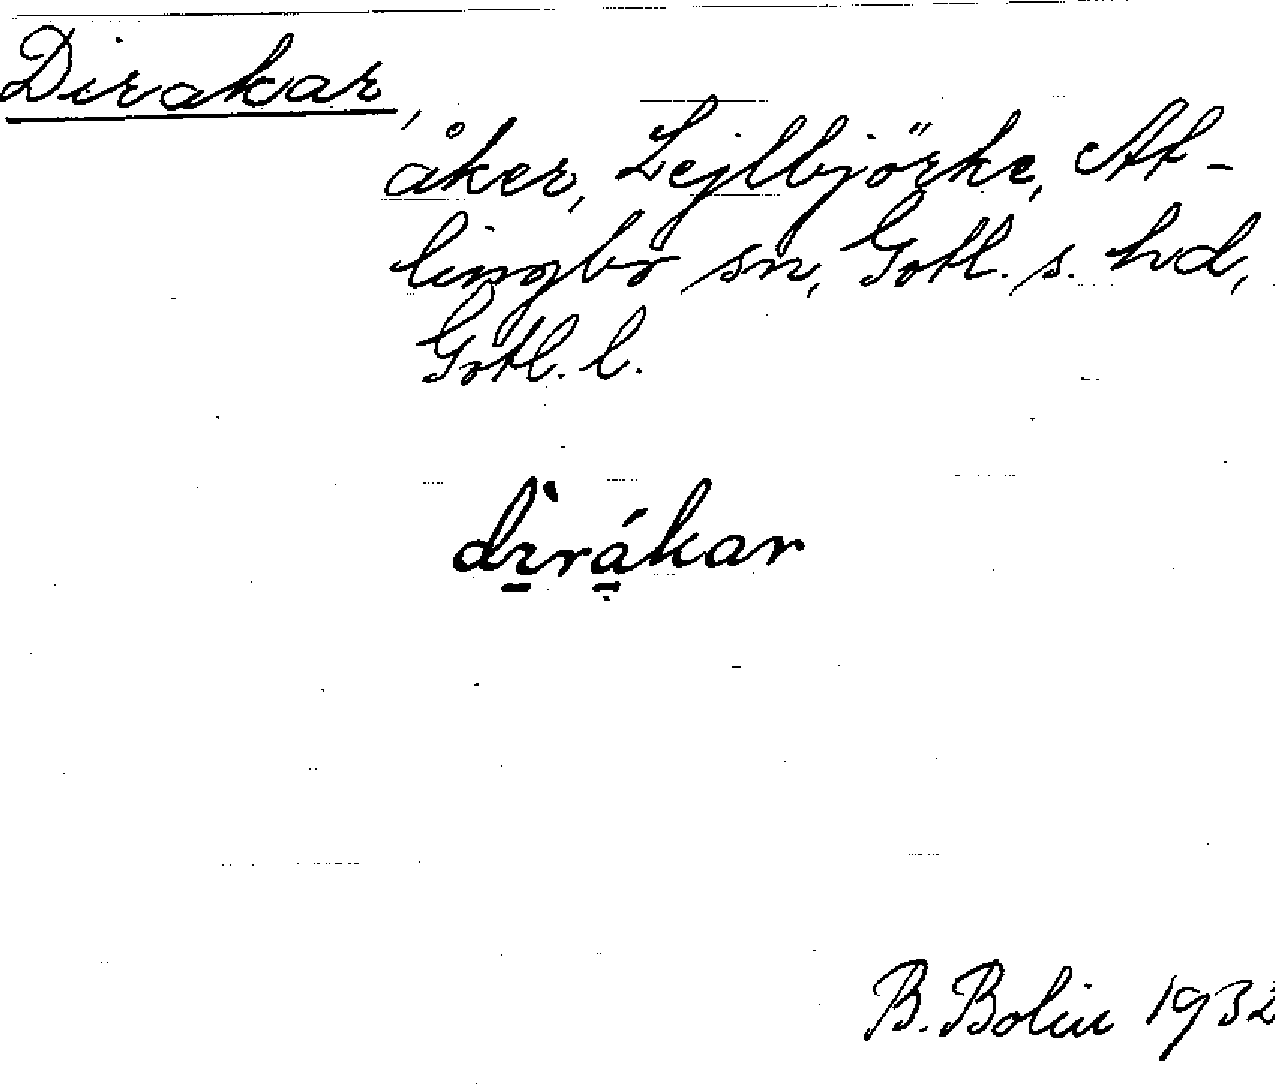 Dirakar,
åker, Lejlbjörke, At-
lingbo sn, Gotl. s. hd,
Gotl. l.
dìrákar
B. Bolin 1932